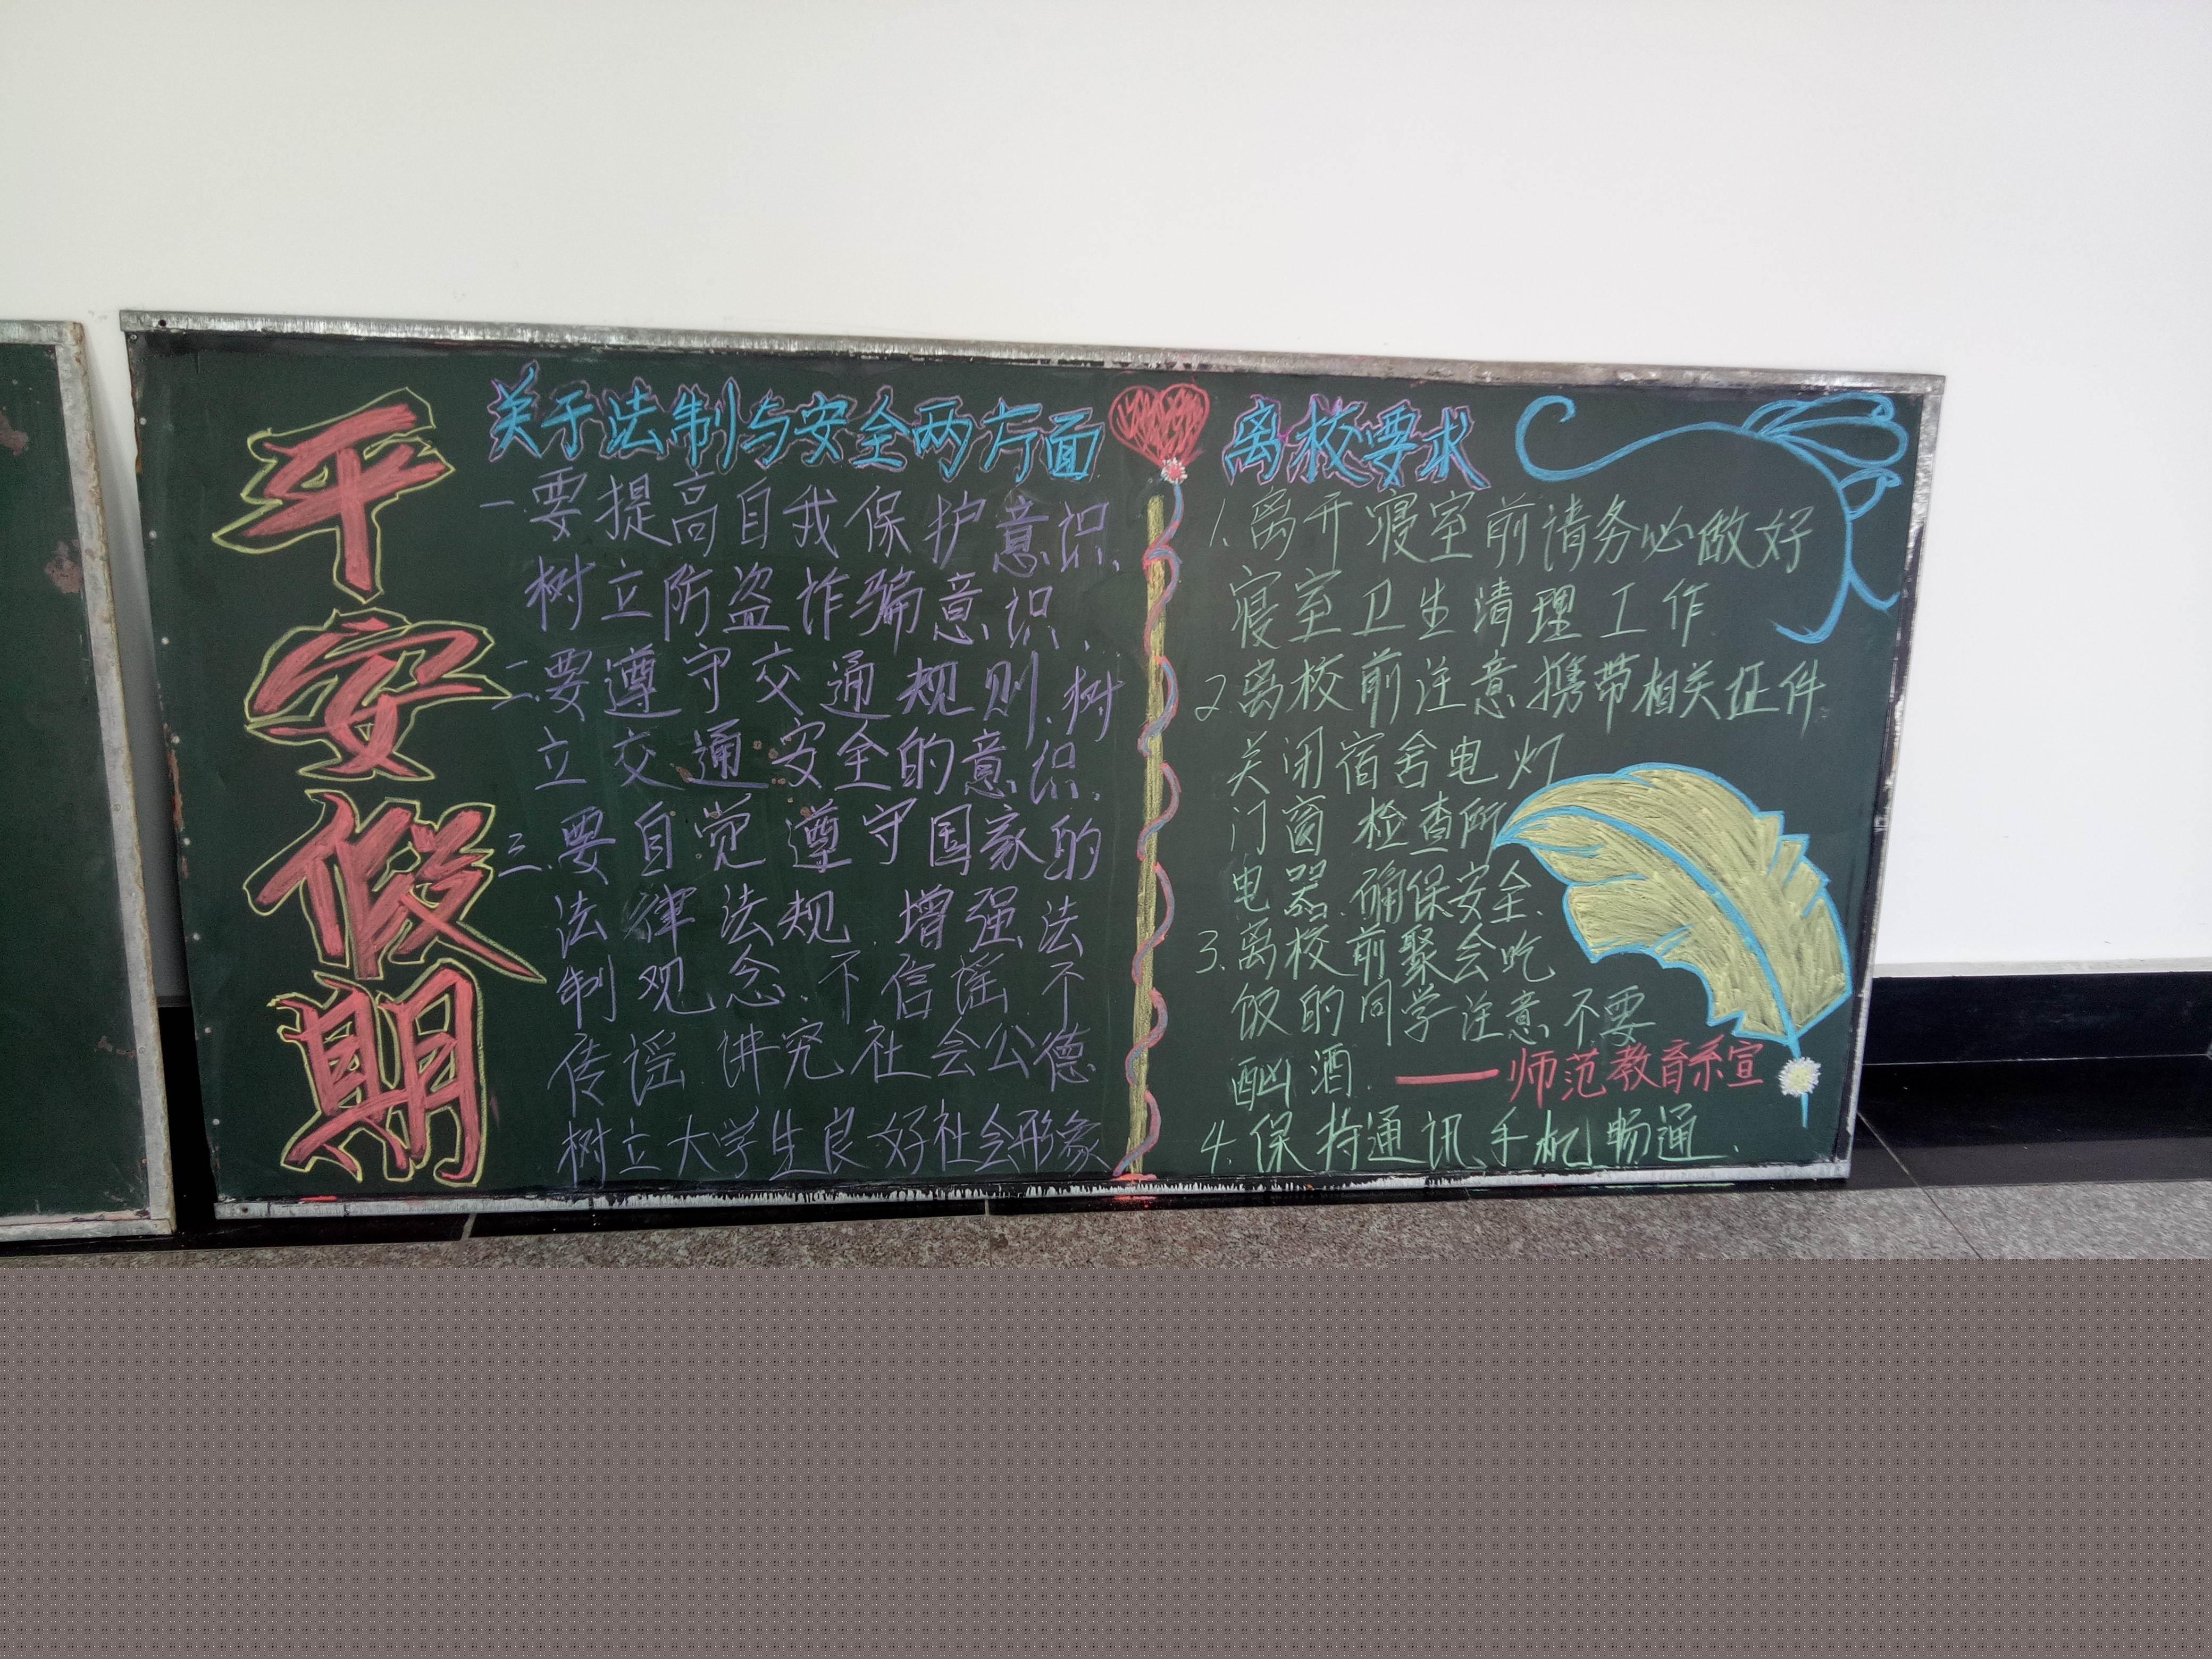 平安假期
关于法制与安全两方面
一.要提高自我保护意识.
树立防盗诈骗意识.
二.要遵守交通规则.树
立交通安全的意识.
三.要自觉遵守国家的
法律法规.增强法
制观念.不信谣不
传谣 讲究社会公德
树立大学生良好社会形象
离校要求
1.离开寝室前请务必做好
寝室卫生清理工作.
2.离校前注意携带相关证件
关闭宿舍电灯
门窗 检查所
电器.确保安全.
3.离校前聚会吃
饭的同学注意不要
酗酒.
——师范教育系宣
4.保持通讯手机畅通.